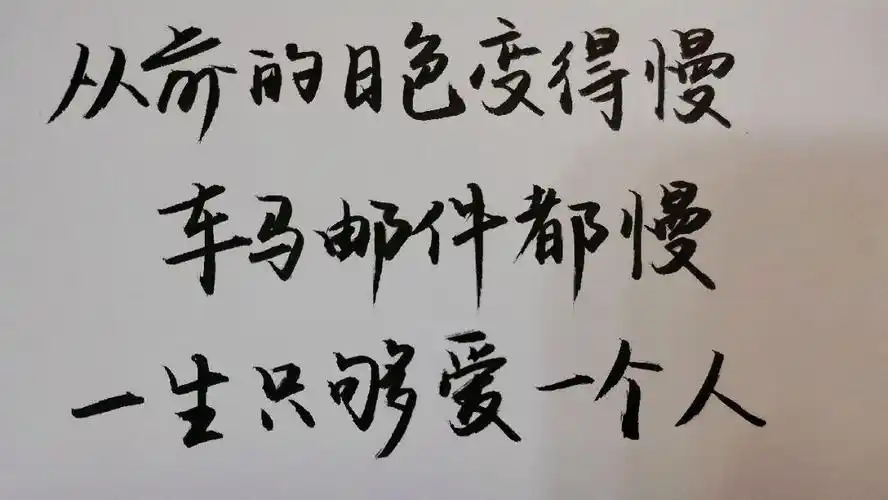 从前的日色变得慢
车马邮件都慢
一生只够爱一个人